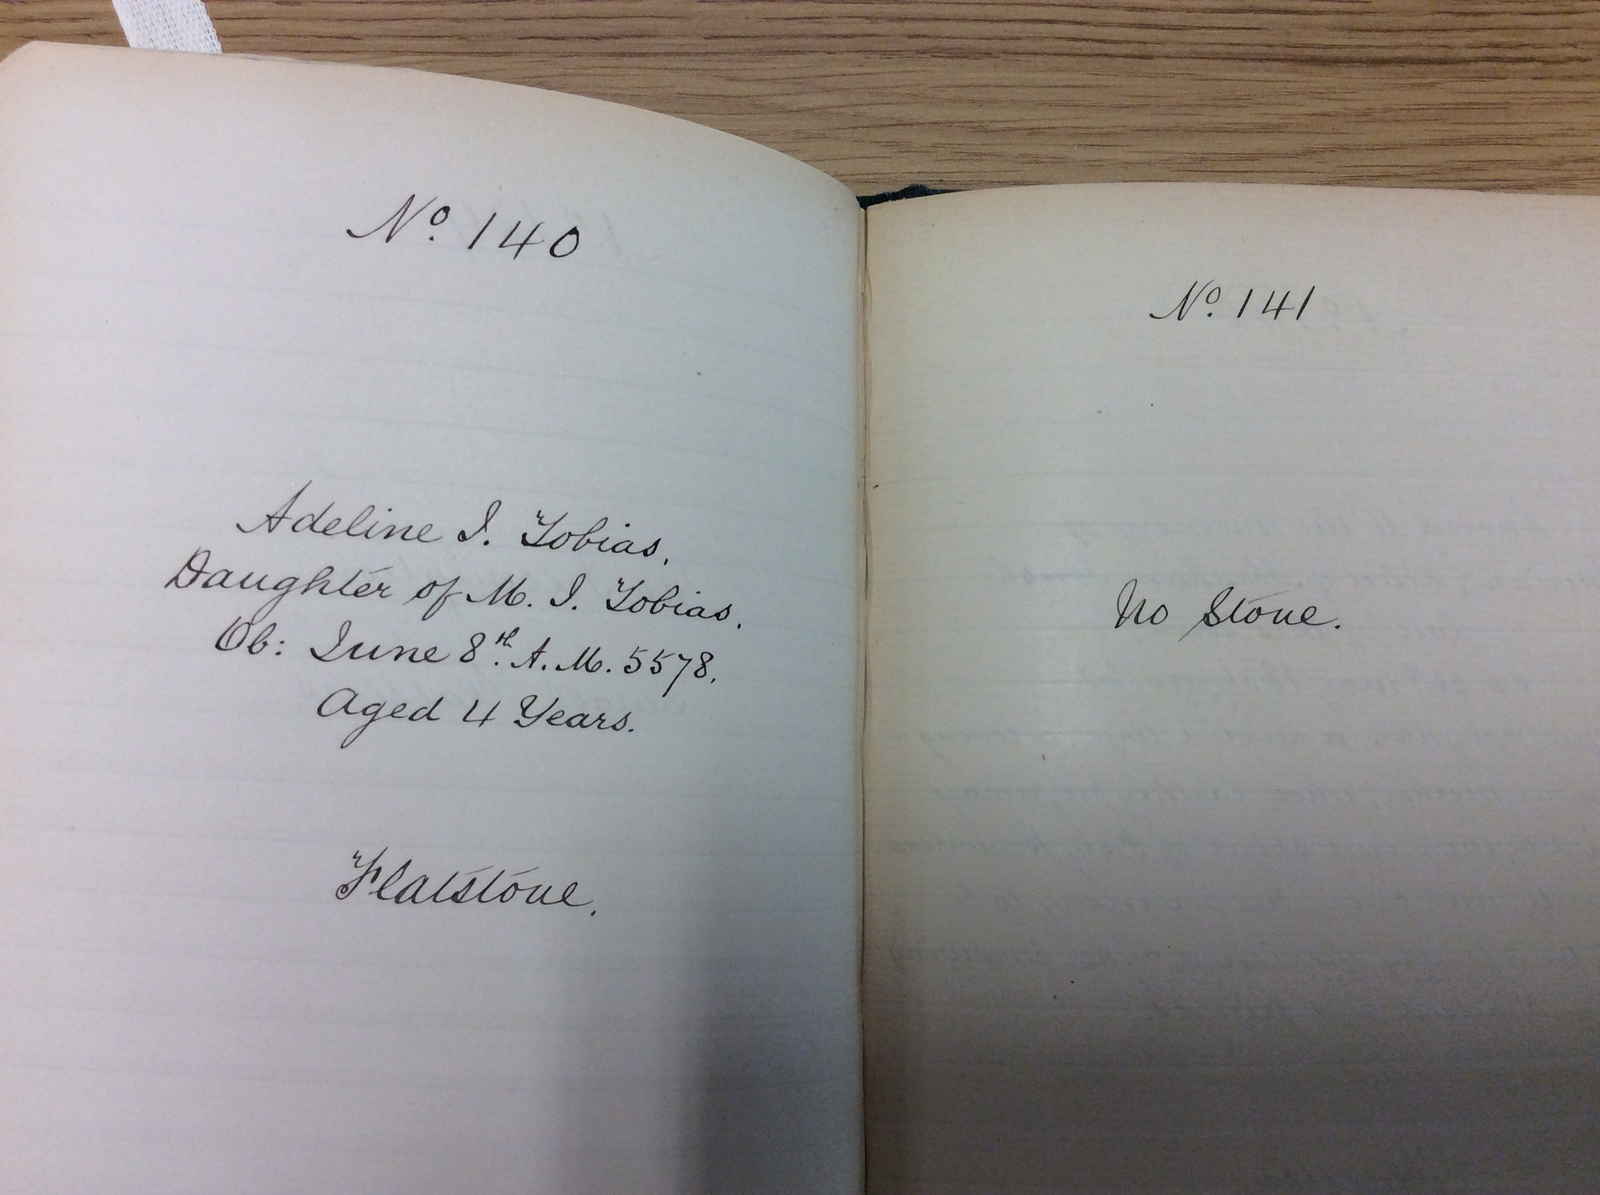 No. 140
Adeline I. Tobias,
Daughter of M. I. Tobias,
Ob: June 8th. A. M. 5578,
Aged 4 Years.
Flatstone.
No. 141
No Stone.